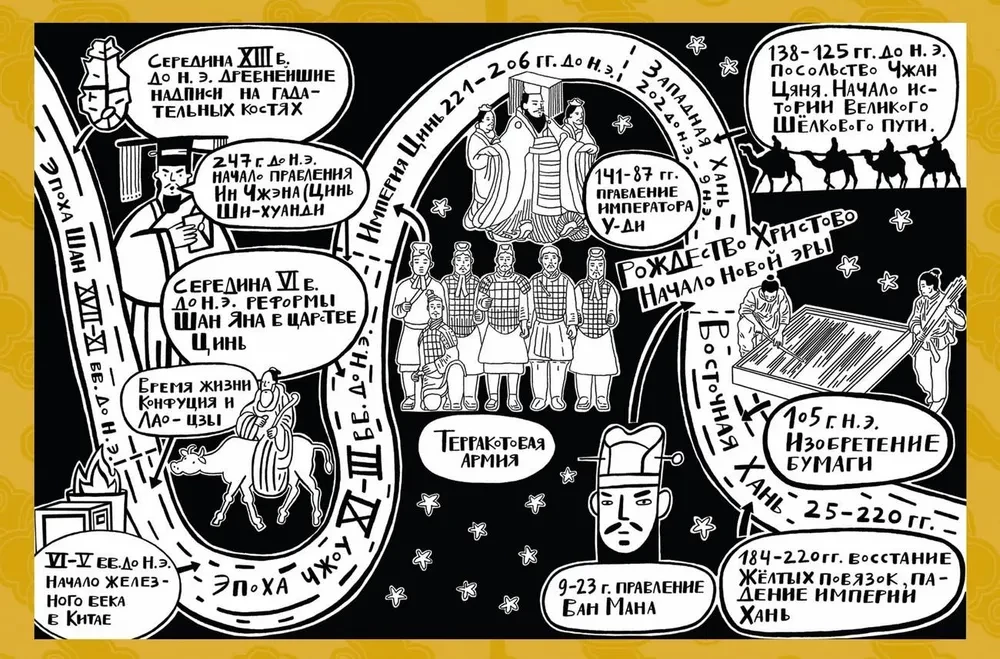 Середина XIII в.
до н. э. древнейшие
надписи на гада-
тельных костях
Эпоха Шан XVII-XI вв. до н. э.
247 г. до н. э.
начало правления
Ин Чжэна (Цинь
Ши-хуанди
Середина VI в.
до н. э. реформы
Шан Яна в царстве
Цинь
Время жизни
Конфуция и
Лао-цзы
VI-V вв. до н. э.
Начало желез-
ного века
в Китае
Эпоха Чжоу XI-III вв. до н. э.
Империя Цинь 221-206 гг. до н. э.
Терракотовая
армия
141-87 гг.
правление
императора
У-ди
Западная Хань
202 до н. э. - 9 н. э.
138-125 гг. до н. э.
посольство Чжан
Цяня. Начало ис-
тории Великого
Шёлкового пути.
Рождество Христово
Начало новой эры
9-23 г. правление
Ван Мана
Восточная Хань 25-220 гг.
105 г. н. э.
Изобретение
бумаги
184-220 гг. восстание
Жёлтых повязок, па-
дение империи
Хань